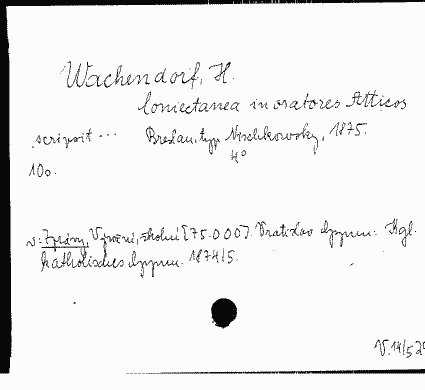 Wachendorf, H.
Coniectanea in oratores Atticos
scripsit ... Breslau, typ. Nischkowsky, 1875.
4°
10 s.
v: Zprávy, Výroční, školní [75.000]. Vratislav Gymn.: Kgl.
katholisches Gymn. 1874/5.
V.14/52